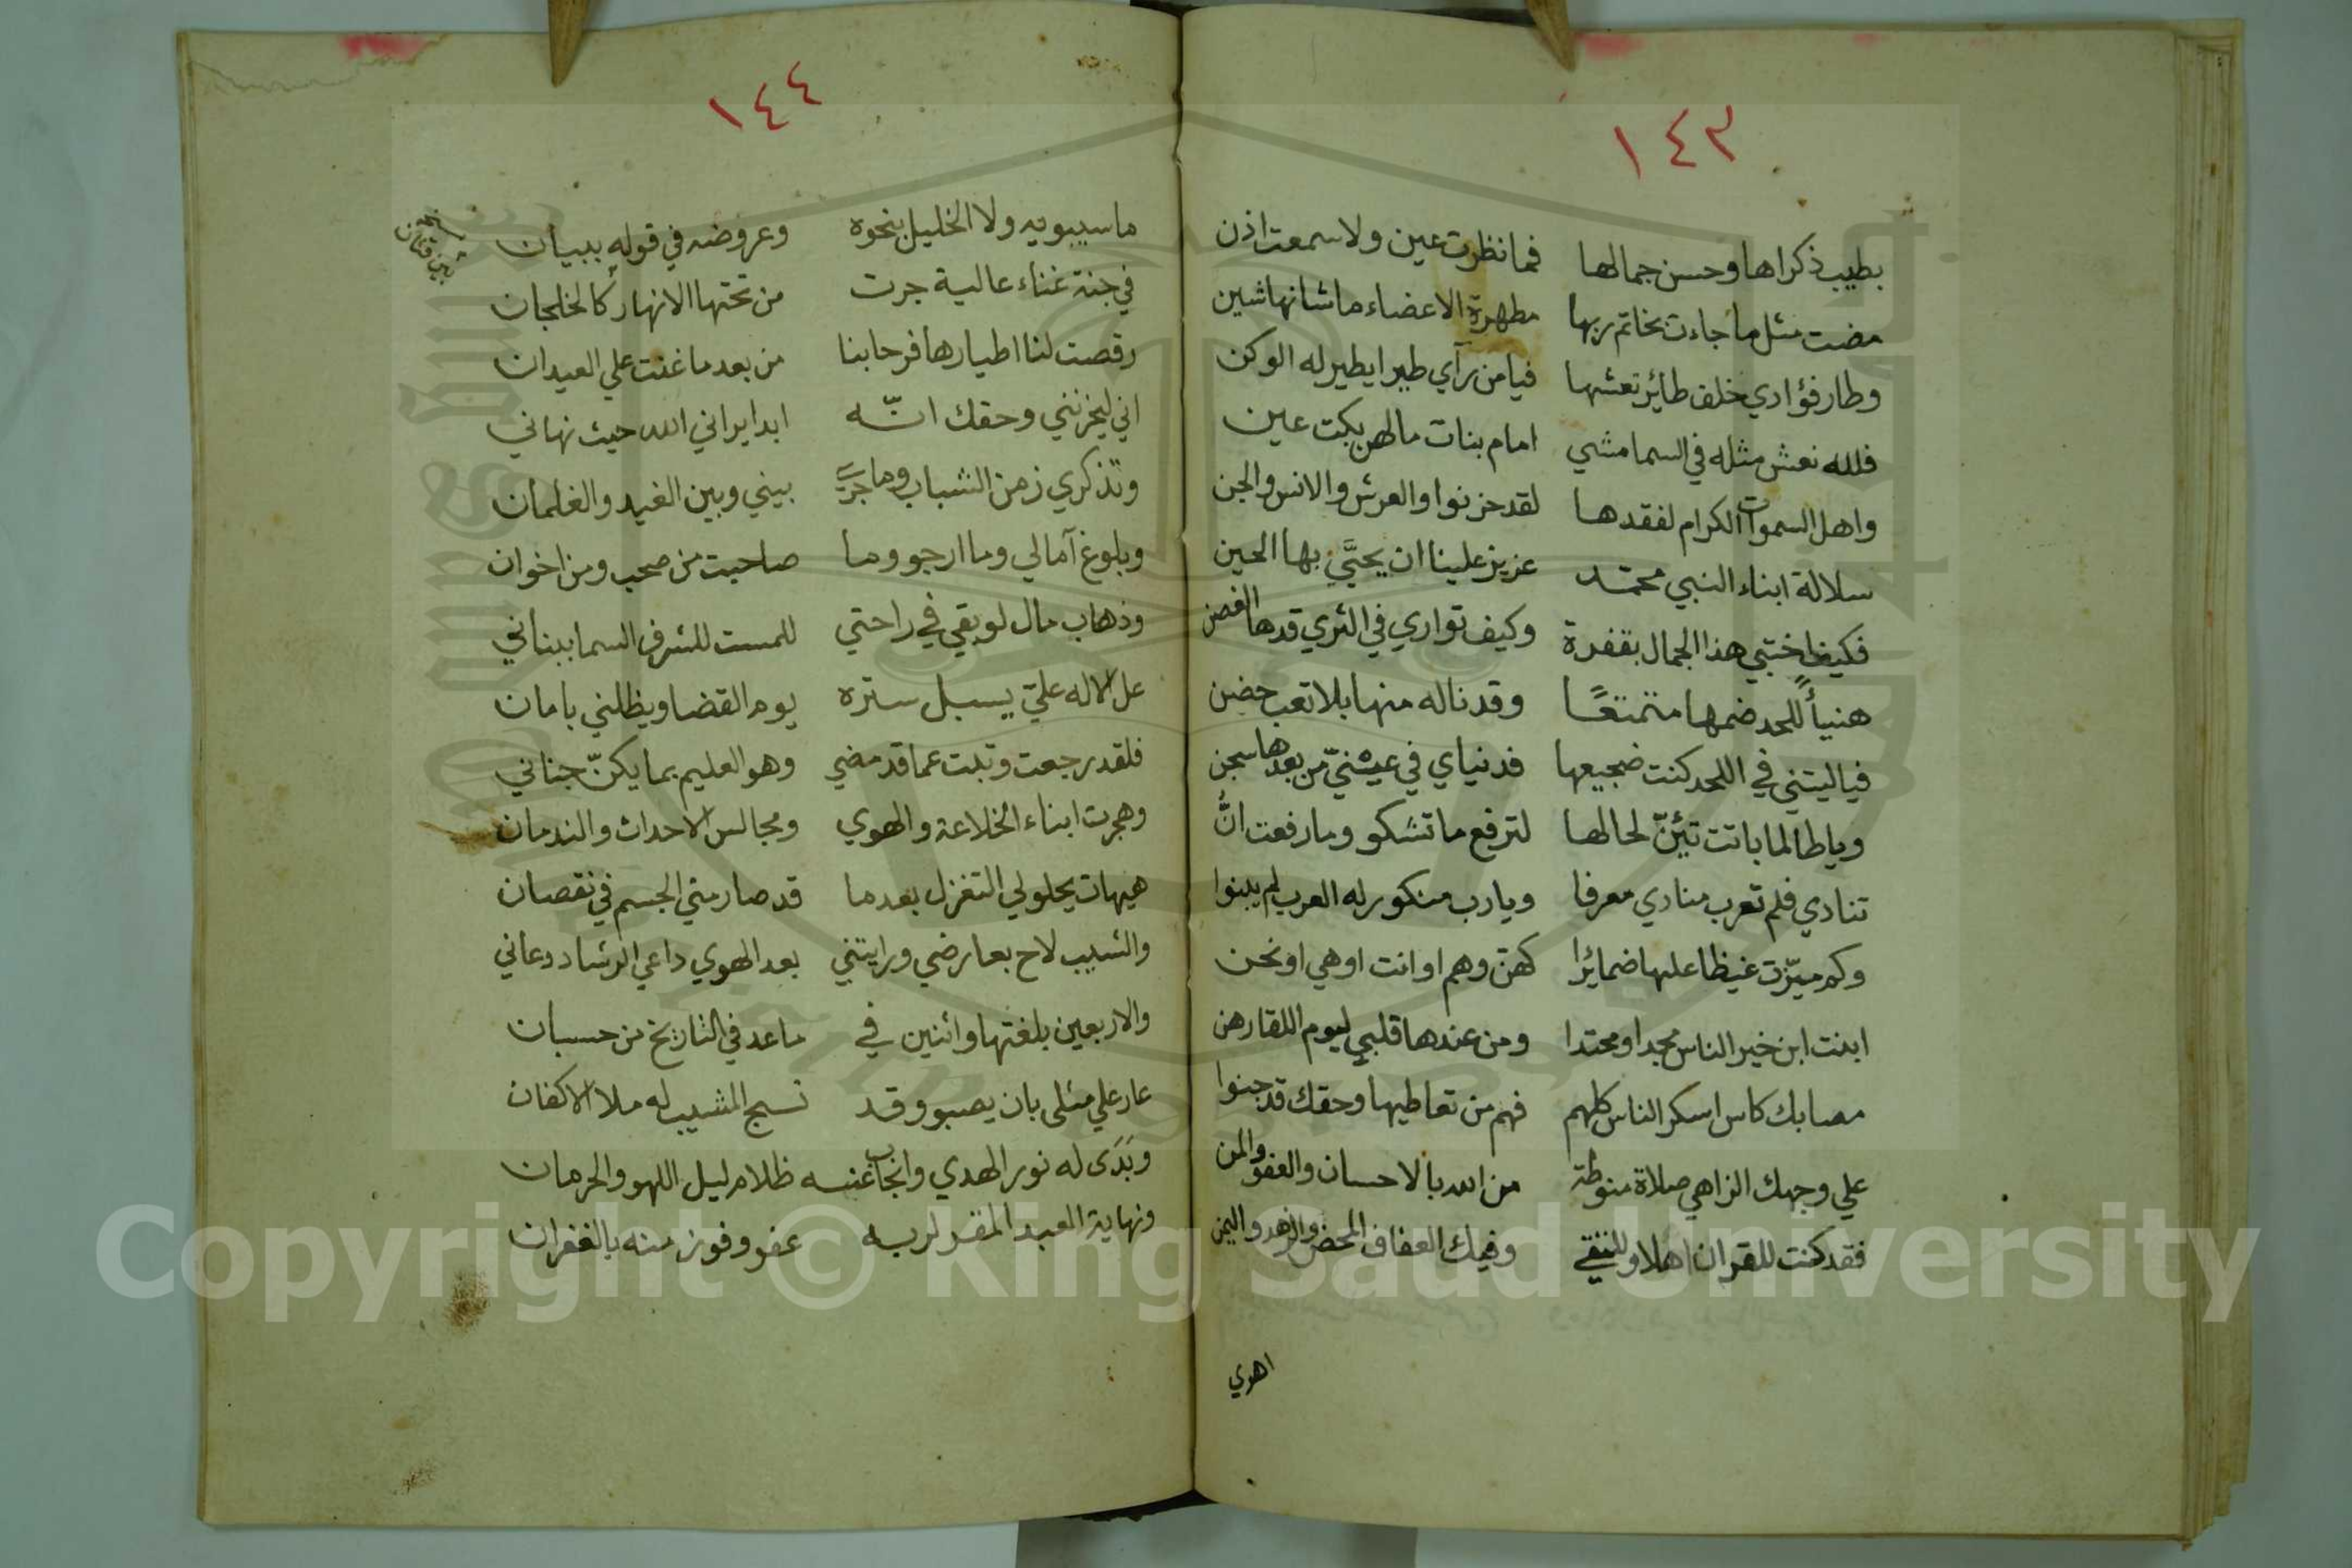 ١٤٣
بطيب ذكراها وحسن جمالها فما نظرت عين ولا سمعت اذن
مضت مثل ما جاءت بخاتم ربها مطهرة الاعضاء ما شانها شين
وطار فؤادي خلف طائر نعشها فيا من رآي طيرا يطير له الوكن
فلله نعش مثله في السما مشي امام بنات ما لهن بكت عين
واهل السموات الكرام لفقدها لقد حزنوا والعرش والانس والجن
سلالة ابناء النبي محمد عزيز علينا ان يحيَّي بها الحين
فكيف اختبي هذا الجمال بقفرة وكيف تواري في الثري قدها الغصن
هنيأ للحد ضمها متمتعًا وقد ناله منها بلا تعب حضن
فياليتني في اللحد كنت ضجيعها فدنياي في عيني من بعدها سجن
وياطالما باتت تئنّ لحالها لترفع ما تشكو وما رفعت انَّ
تنادي فلم تعرب منادي معرفا ويارب منكور له العرب لم يبنوا
وكم ميّزت غيظا عليها ضمائرا كهنّ وهم او انت او هي او نحن
ابنت ابن خير الناس مجدا ومحتدا ومن عندها قلبي ليوم اللقا رهن
مصابك كاس اسكر الناس كلهم فهم من تعاطيها وحقك قد جنوا
علي وجهك الزاهي صلاة منوطة من الله بالاحسان والعفو والمن
فقد كنت للقران اهلا وللتقي وفيك العفاف المحض والزهد واليمن
اهوي
١٤٤
ما سيبويه ولا الخليل بنحوه وعروضه في قوله ببيان
نسخة
في جنة غناء عالية جرت من تحتها الانهار كالخلجان
رقصت لنا اطيارها فرحا بنا من بعد ما غنت علي العيدان
اني ليحزنني وحقك انّه ابدا يراني الله حيث نهاني
وتذكري زمن الشباب وما جري بيني وبين الغيد والغلمان
وبلوغ آمالي وما ارجو وما صاحبت من صحب ومن اخوان
وذهاب مال لو بقي في راحتي للمست للشرف السما ببناني
عل الاله عليّ يسبل ستره يوم القضا ويظلني بامان
فلقد رجعت وتبت عما قد مضي وهو العليم بما يكنّ جناني
وهجرت ابناء الخلاعة والهوي ومجالس الاحداث والندمان
هيهات يحلو لي التغزل بعدما قد صار مني الجسم في نقصان
والشيب لاح بعارضي ورايتني بعد الهوي داعي الرشاد دعاني
والاربعين بلغتها واثنين في ما عد في التاريخ من حسبان
عار علي مثلي بان يصبو وقد نسج المشيب له ملا الاكفان
وبَدَى له نور الهدي وانجاب عنه ظلام ليل اللهو والحرمان
ونهاية العبد المقر لربه عفو وفوز منه بالغفران
Copyright © King Saud University